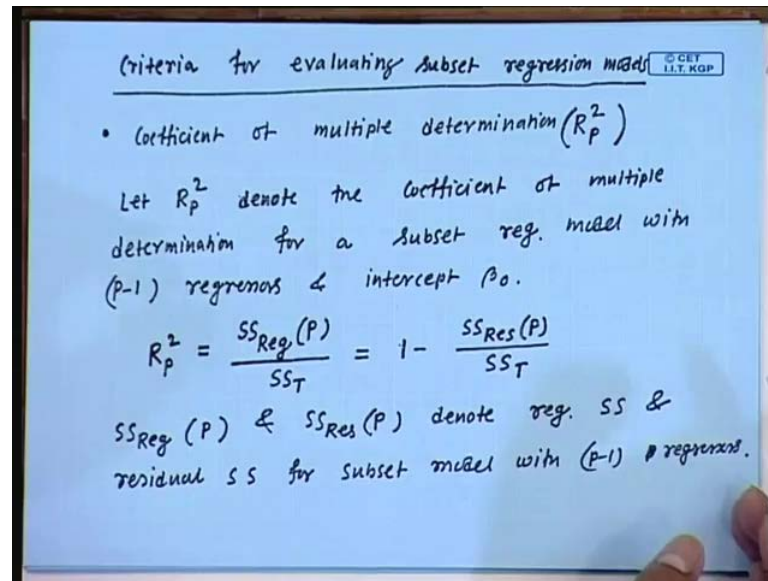 Criteria for evaluating subset regression models
© CET
I.I.T. KGP
• Coefficient of multiple determination (R²ₚ)
Let R²ₚ denote the coefficient of multiple
determination for a subset reg. model with
(P-1) regressors & intercept β₀.
R²ₚ = SS_Reg(P) / SS_T = 1 - SS_Res(P) / SS_T
SS_Reg (P) & SS_Res (P) denote reg. SS &
residual SS for subset model with (P-1) regressors.